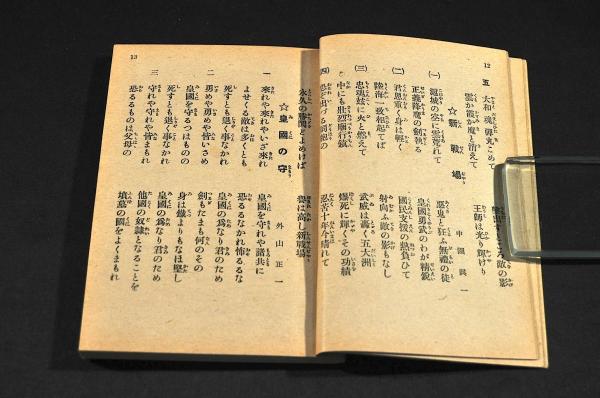 12
五 大和魂
雲か霞か魔と消えて
王師は光り輝けり
☆新戰場
中國與一
(一)
滬城の空に雲荒れて
惡鬼と狂ふ無禮の徒
正義降魔の劍執る
皇國勇武のわが精鋭
(二)
君恩重く身は輕し
國民支援の熱負ひて
陸海一致相起てば
射向ふ敵の影もなし
(三)
忠魂故に火と燃えて
武威は轟く五大洲
中にも壯烈廟行鎮
爆死に輝くその功績
(四)
忍苦十年今晴れて
13
永久の勝鬨とよめけば
譽は高し新戰場
☆皇國の守
外山正一
一
來れや來れやいざ來れ
皇國を守れや諸共に
よせくる敵は多くとも
恐るるなかれ怖るるな
死すとも退く事なかれ
皇國の爲なり君のため
二
勇めや勇めや皆いさめ
劍もたまも何のその
皇國を守るつはものの
身は鐵よりもなほ堅し
死すとも退く事なかれ
皇國の爲なり君のため
三
守れや守れや皆まもれ
他國の奴隷となることを
恐るるものは父母の
墳墓の國をよくまもれ